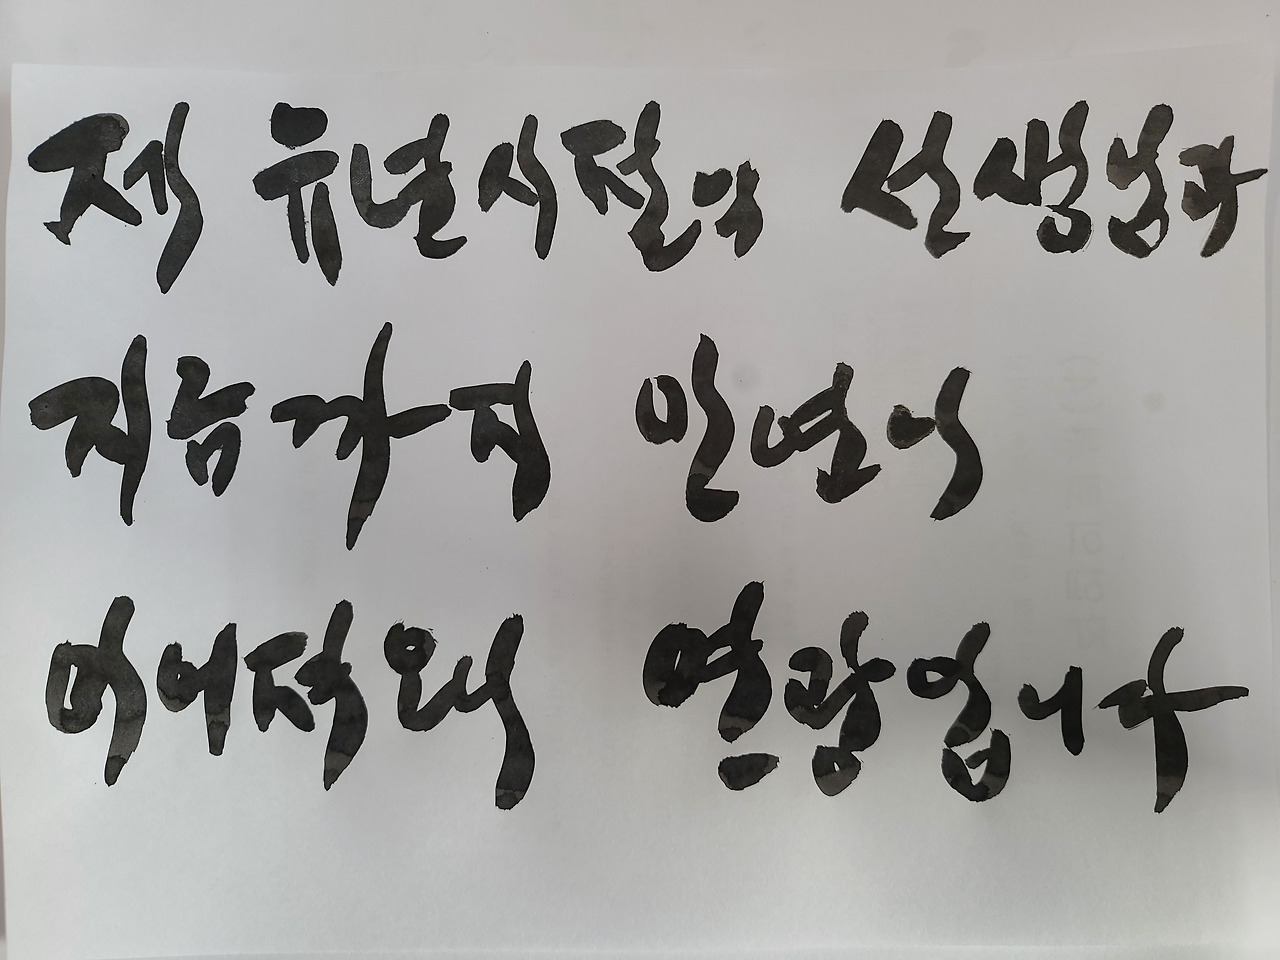 제 유년시절의 선생님과
지금까지 인연이
이어져와서 영광입니다